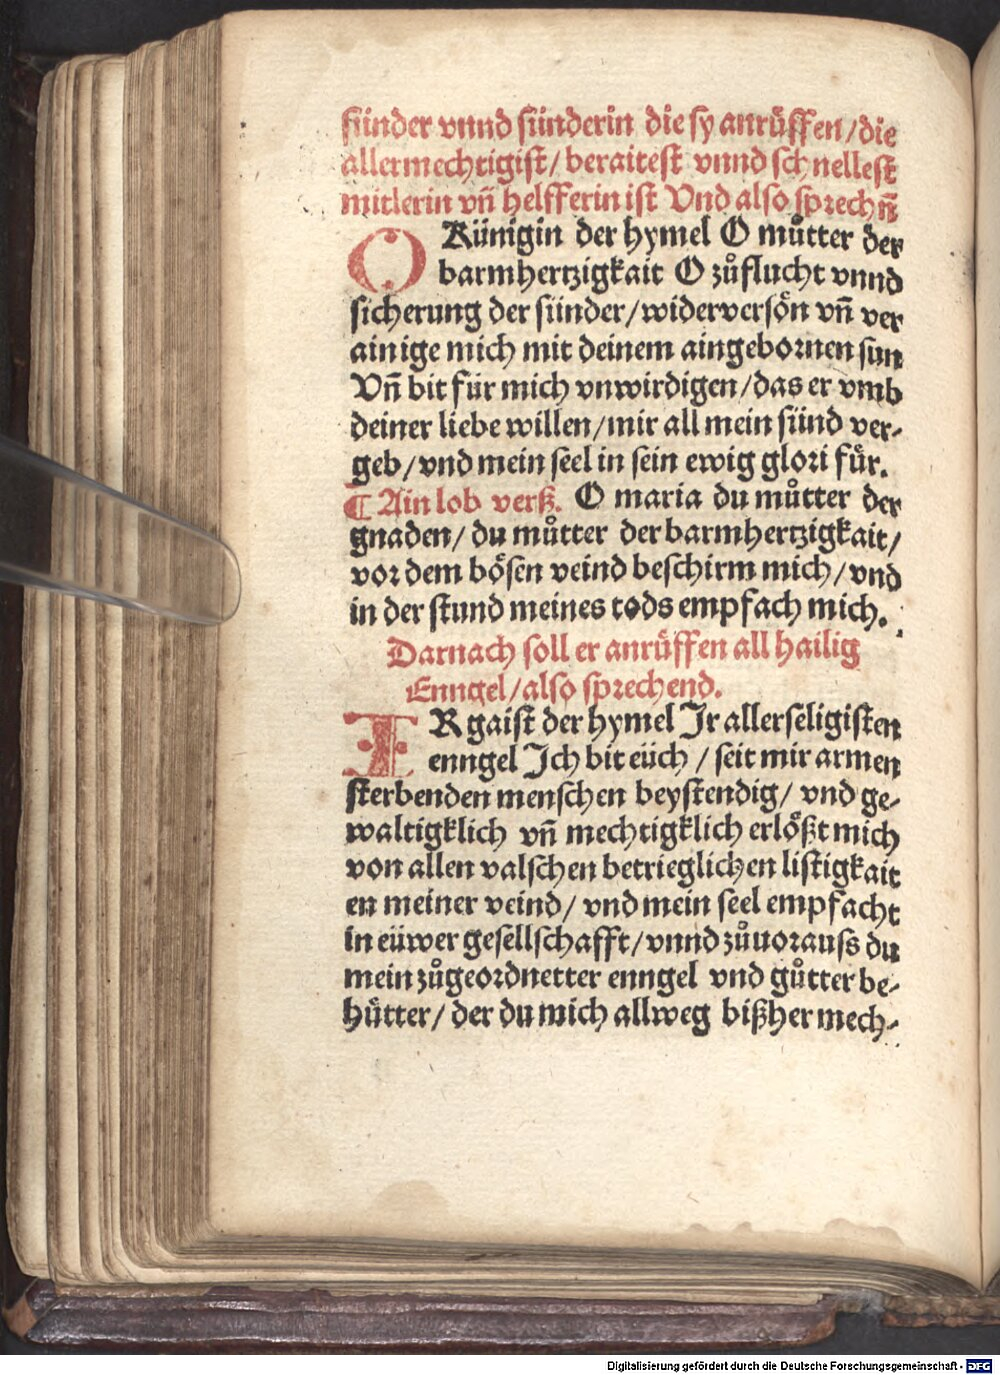 sünder vnnd sünderin die sy anrüffen/die
allermechtigist/ beraitest vnnd schnellest
mitlerin vñ helfferin ist Vnd also sprechñ
O Künigin der hymel O můtter der
barmhertzigkait O zůflucht vnnd
sicherung der sünder/widerversön vñ ver
ainige mich mit deinem aingebornen sun
Vñ bit für mich vnwirdigen/das er vmb
deiner liebe willen/mir all mein sünd ver-
geb/vnd mein seel in sein ewig glori für.
¶ Ain lob verß. O maria du můtter der
gnaden/ du můtter der barmhertzigkait/
vor dem bösen veind beschirm mich/vnd
in der stund meines tods empfach mich.
Darnach soll er anrüffen all hailig
Enngel/also sprechend.
IR gaist der hymel Ir allerseligisten
enngel Ich bit eüch/ seit mir armen
sterbenden menschen beystendig/ vnd ge-
waltigklich vñ mechtigklich erlößt mich
von allen valschen betrieglichen listigkait
en meiner veind/ vnd mein seel empfacht
in eüwer gesellschafft/vnnd zůuorauss du
mein zůgeordnetter enngel vnd gůtter be-
hütter/ der du mich allweg bißher mech-
Digitalisierung gefördert durch die Deutsche Forschungsgemeinschaft - DFG